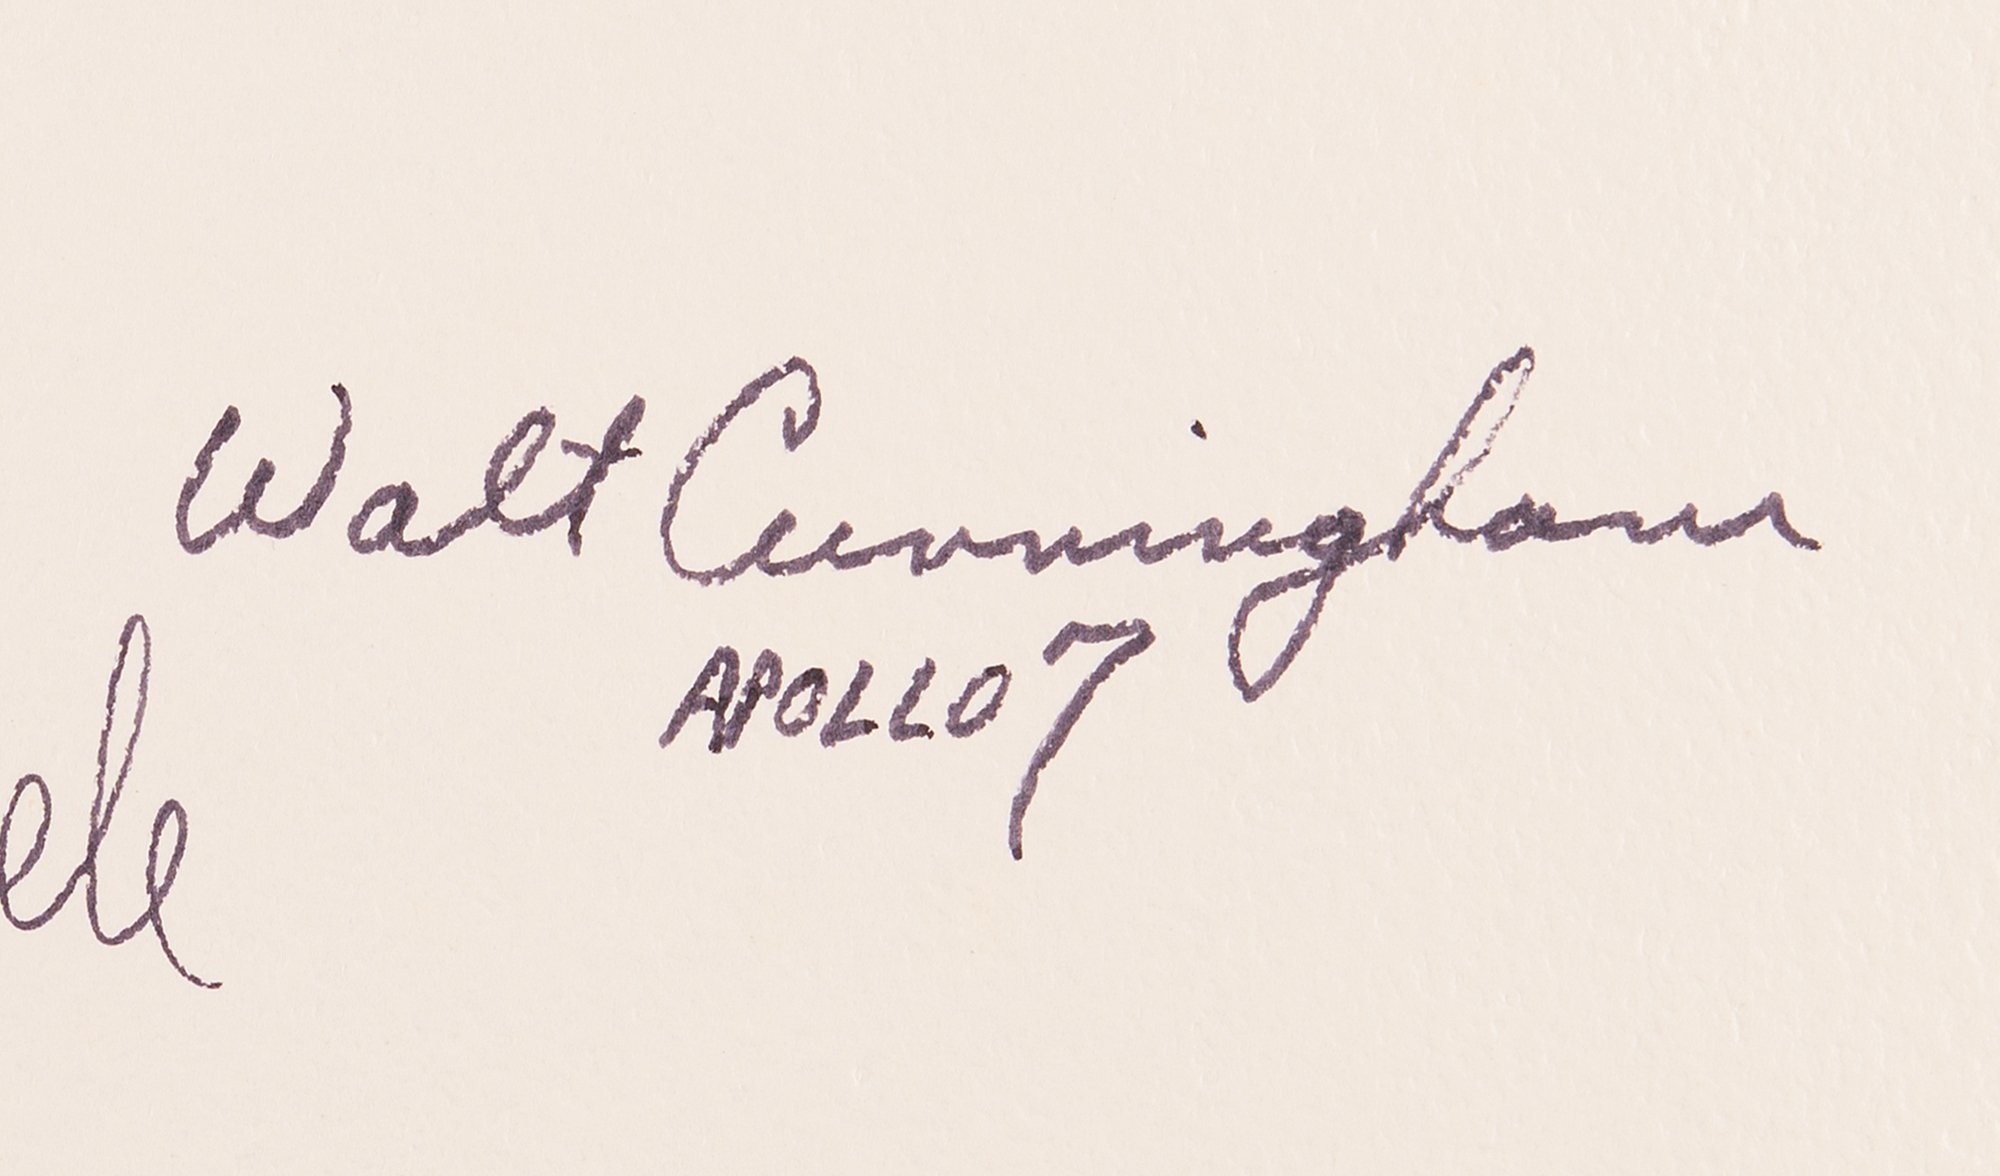 Walt Cunningham
APOLLO 7
ele